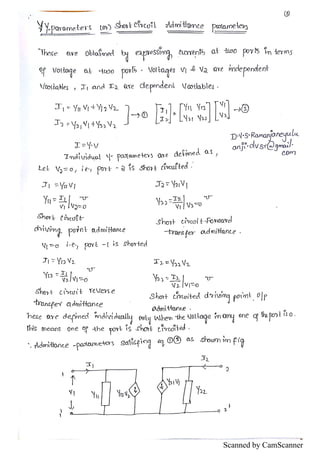 (5)
Y-parameters (or) Short circuit Admittance parameters
These are obtained by expressing currents at two ports in terms
of Voltage at two ports. Voltages V1 & V2 are independent
Variables, I1 and I2 are dependent Variables.
I1 = Y11 V1 + Y12 V2
I2 = Y21 V1 + Y22 V2 → ① [I1 I2] = [Y11 Y12 Y21 Y22] [V1 V2] → ②
I = Y·V
Individual Y- parameters are defined as,
Let V2=0, i.e, port - 2 is short circuited.
I1 = Y11 V1 I2 = Y21 V1
Y11 = I1/V1 | V2=0 ℧
short circuit-
driving point admittance
short circuit-forward
transfer admittance.
V1=0 i.e, port -1 is shorted
I1 = Y12 V2 I2 = Y22 V2
Y12 = I1/V2 | V1=0 ℧ Y22 = I2/V2 | V1=0 ℧
short circuit reverse
transfer admittance
Short circuited driving point o/p
admittance.
These are defined individually only when the voltage in any one of the port is 0.
this means one of the port is short circuited.
∴ Admittance -parameters satisfying eq ①② as shown in fig
I1 I2
1 2
V1 Y11 Y12V2 Y21V1 Y22
1' 2'
Scanned by CamScanner